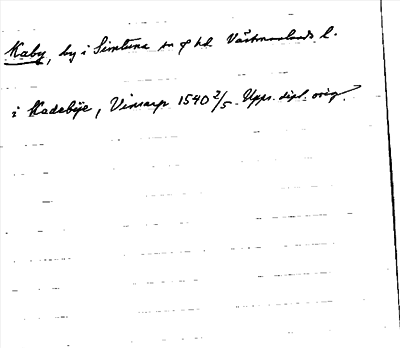 Kaby, by i Simtuna sn o hd Västmanlands l.
i Kadabÿe, Vinsarp 1540 2/5 Upps. dipl. orig.